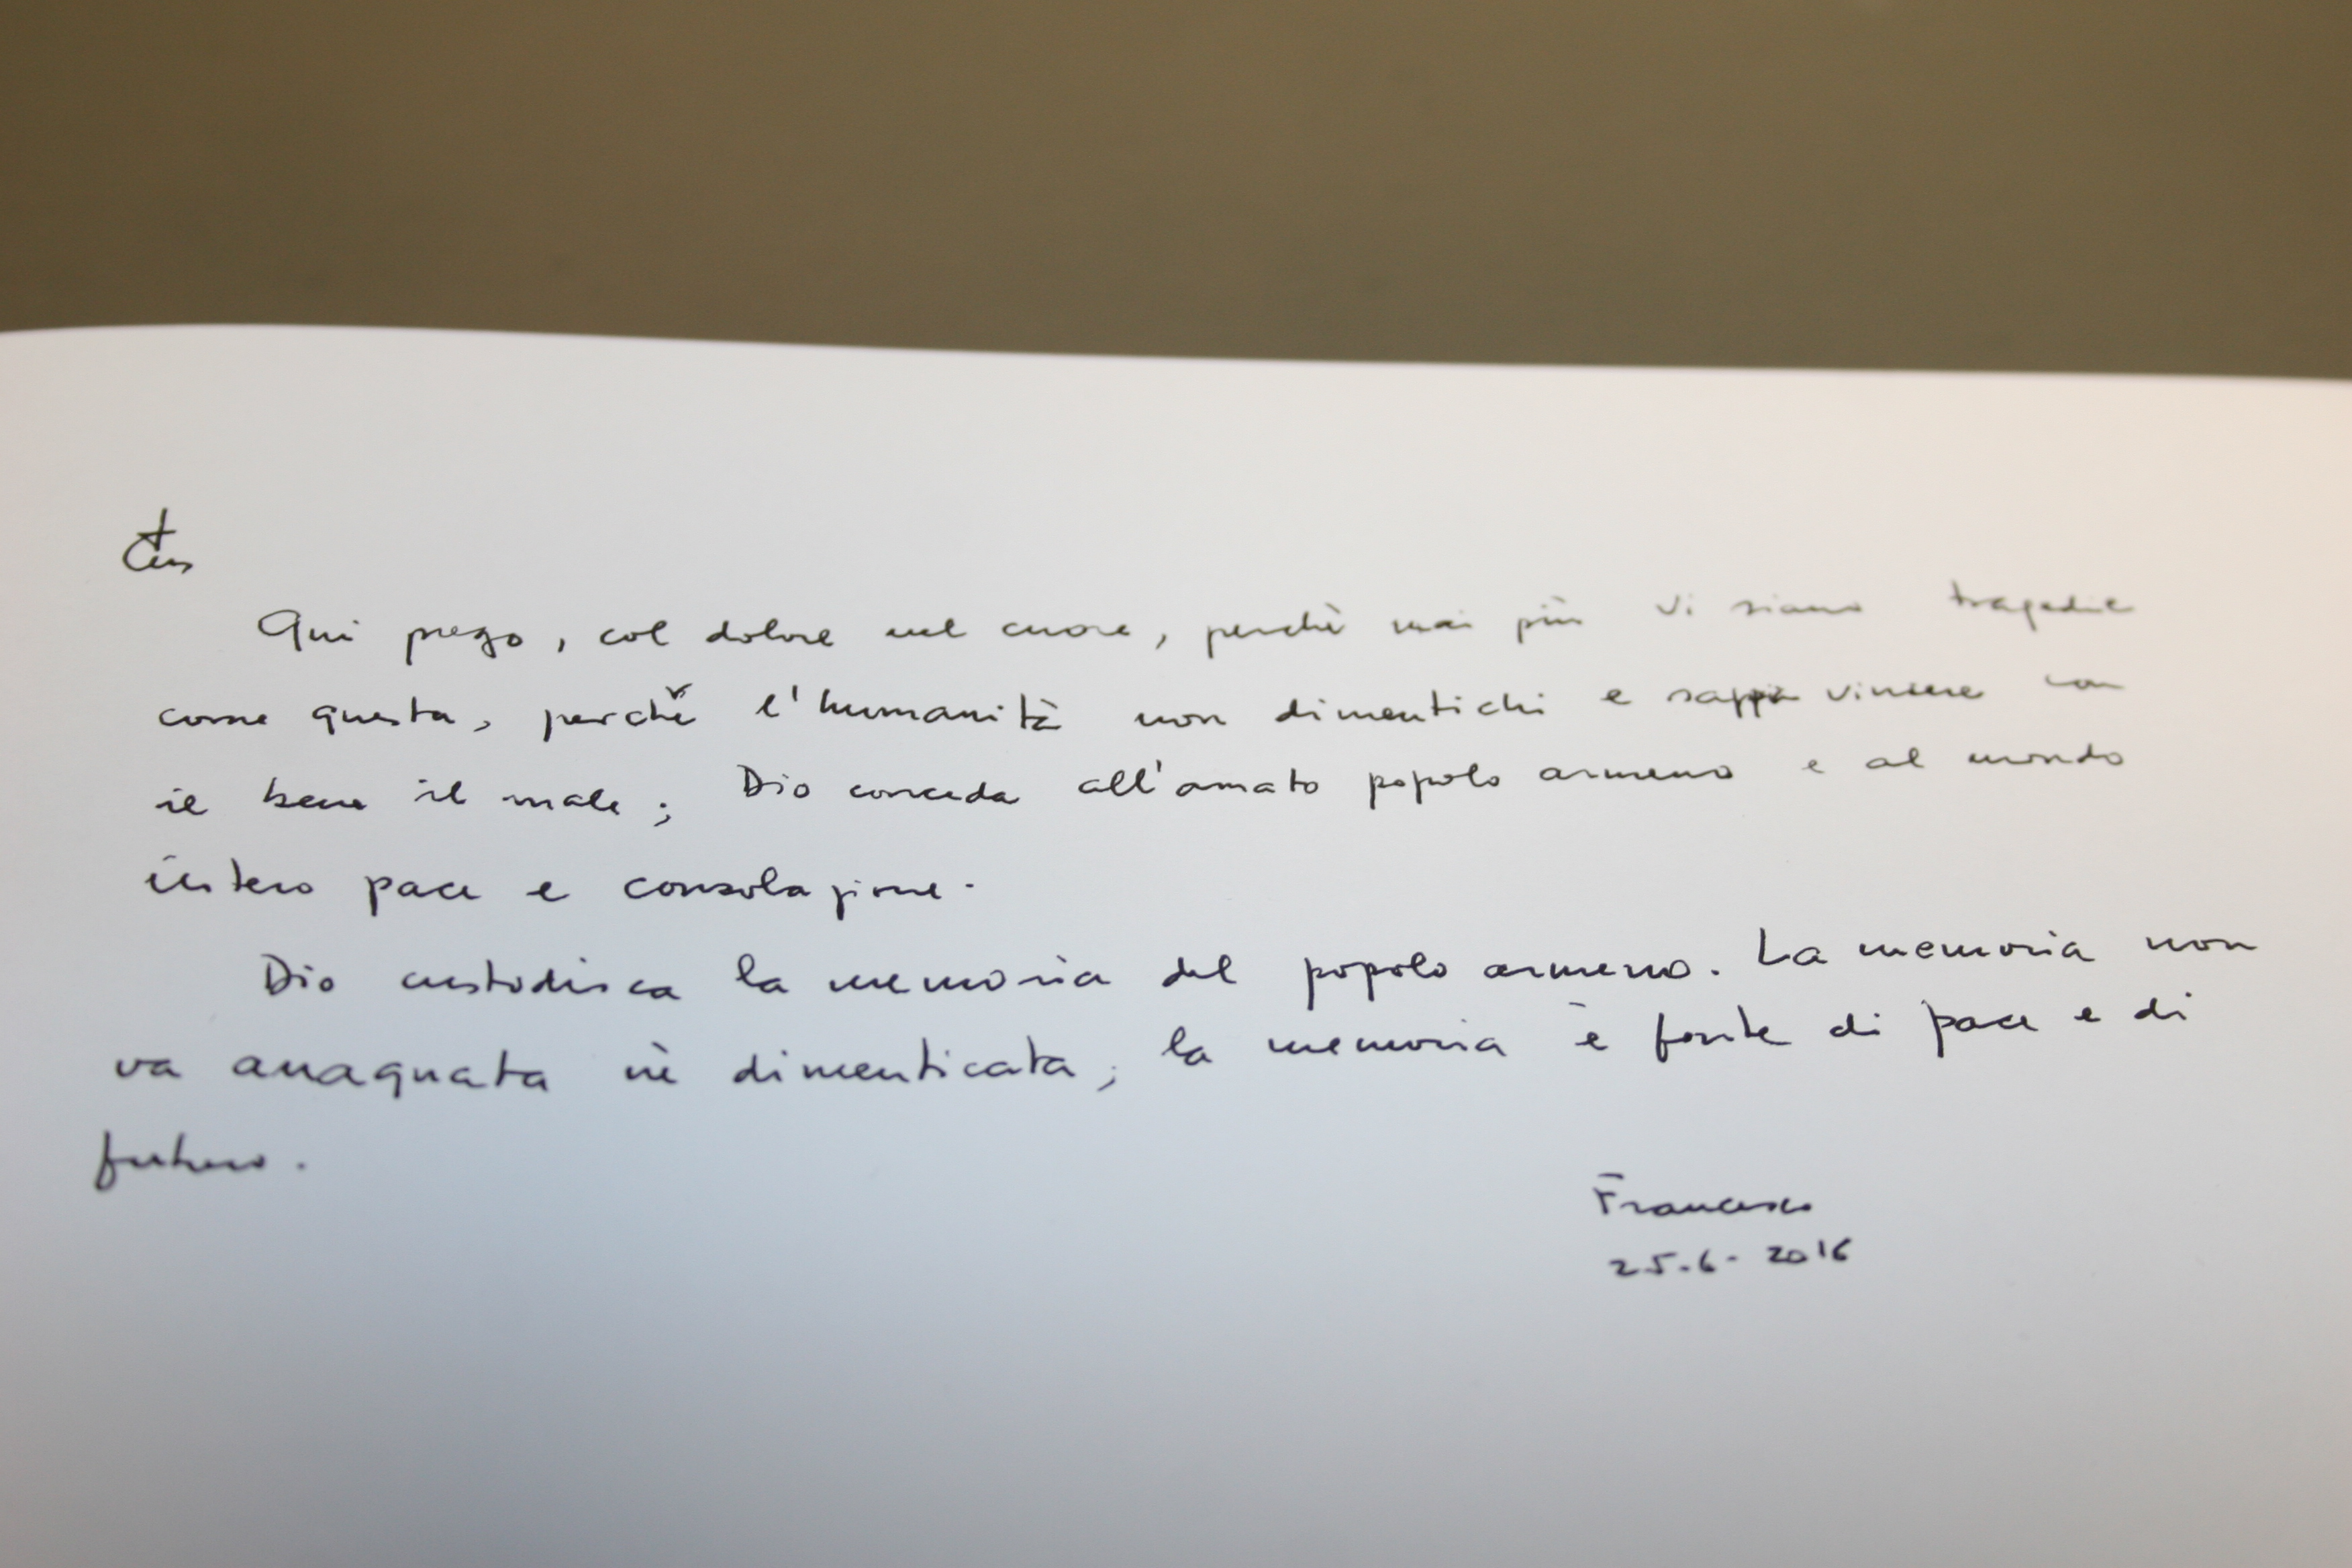 Qui prego, col dolore nel cuore, perchè mai più vi siano tragedie
come questa, perchè l'humanità non dimentichi e sappia vincere con
il bene il male; Dio conceda all'amato popolo armeno e al mondo
intero pace e consolazione.
Dio custodisca la memoria del popolo armeno. La memoria non
va anaquata nè dimenticata; la memoria è fonte di pace e di
futuro.
Francesco
25.6-2016